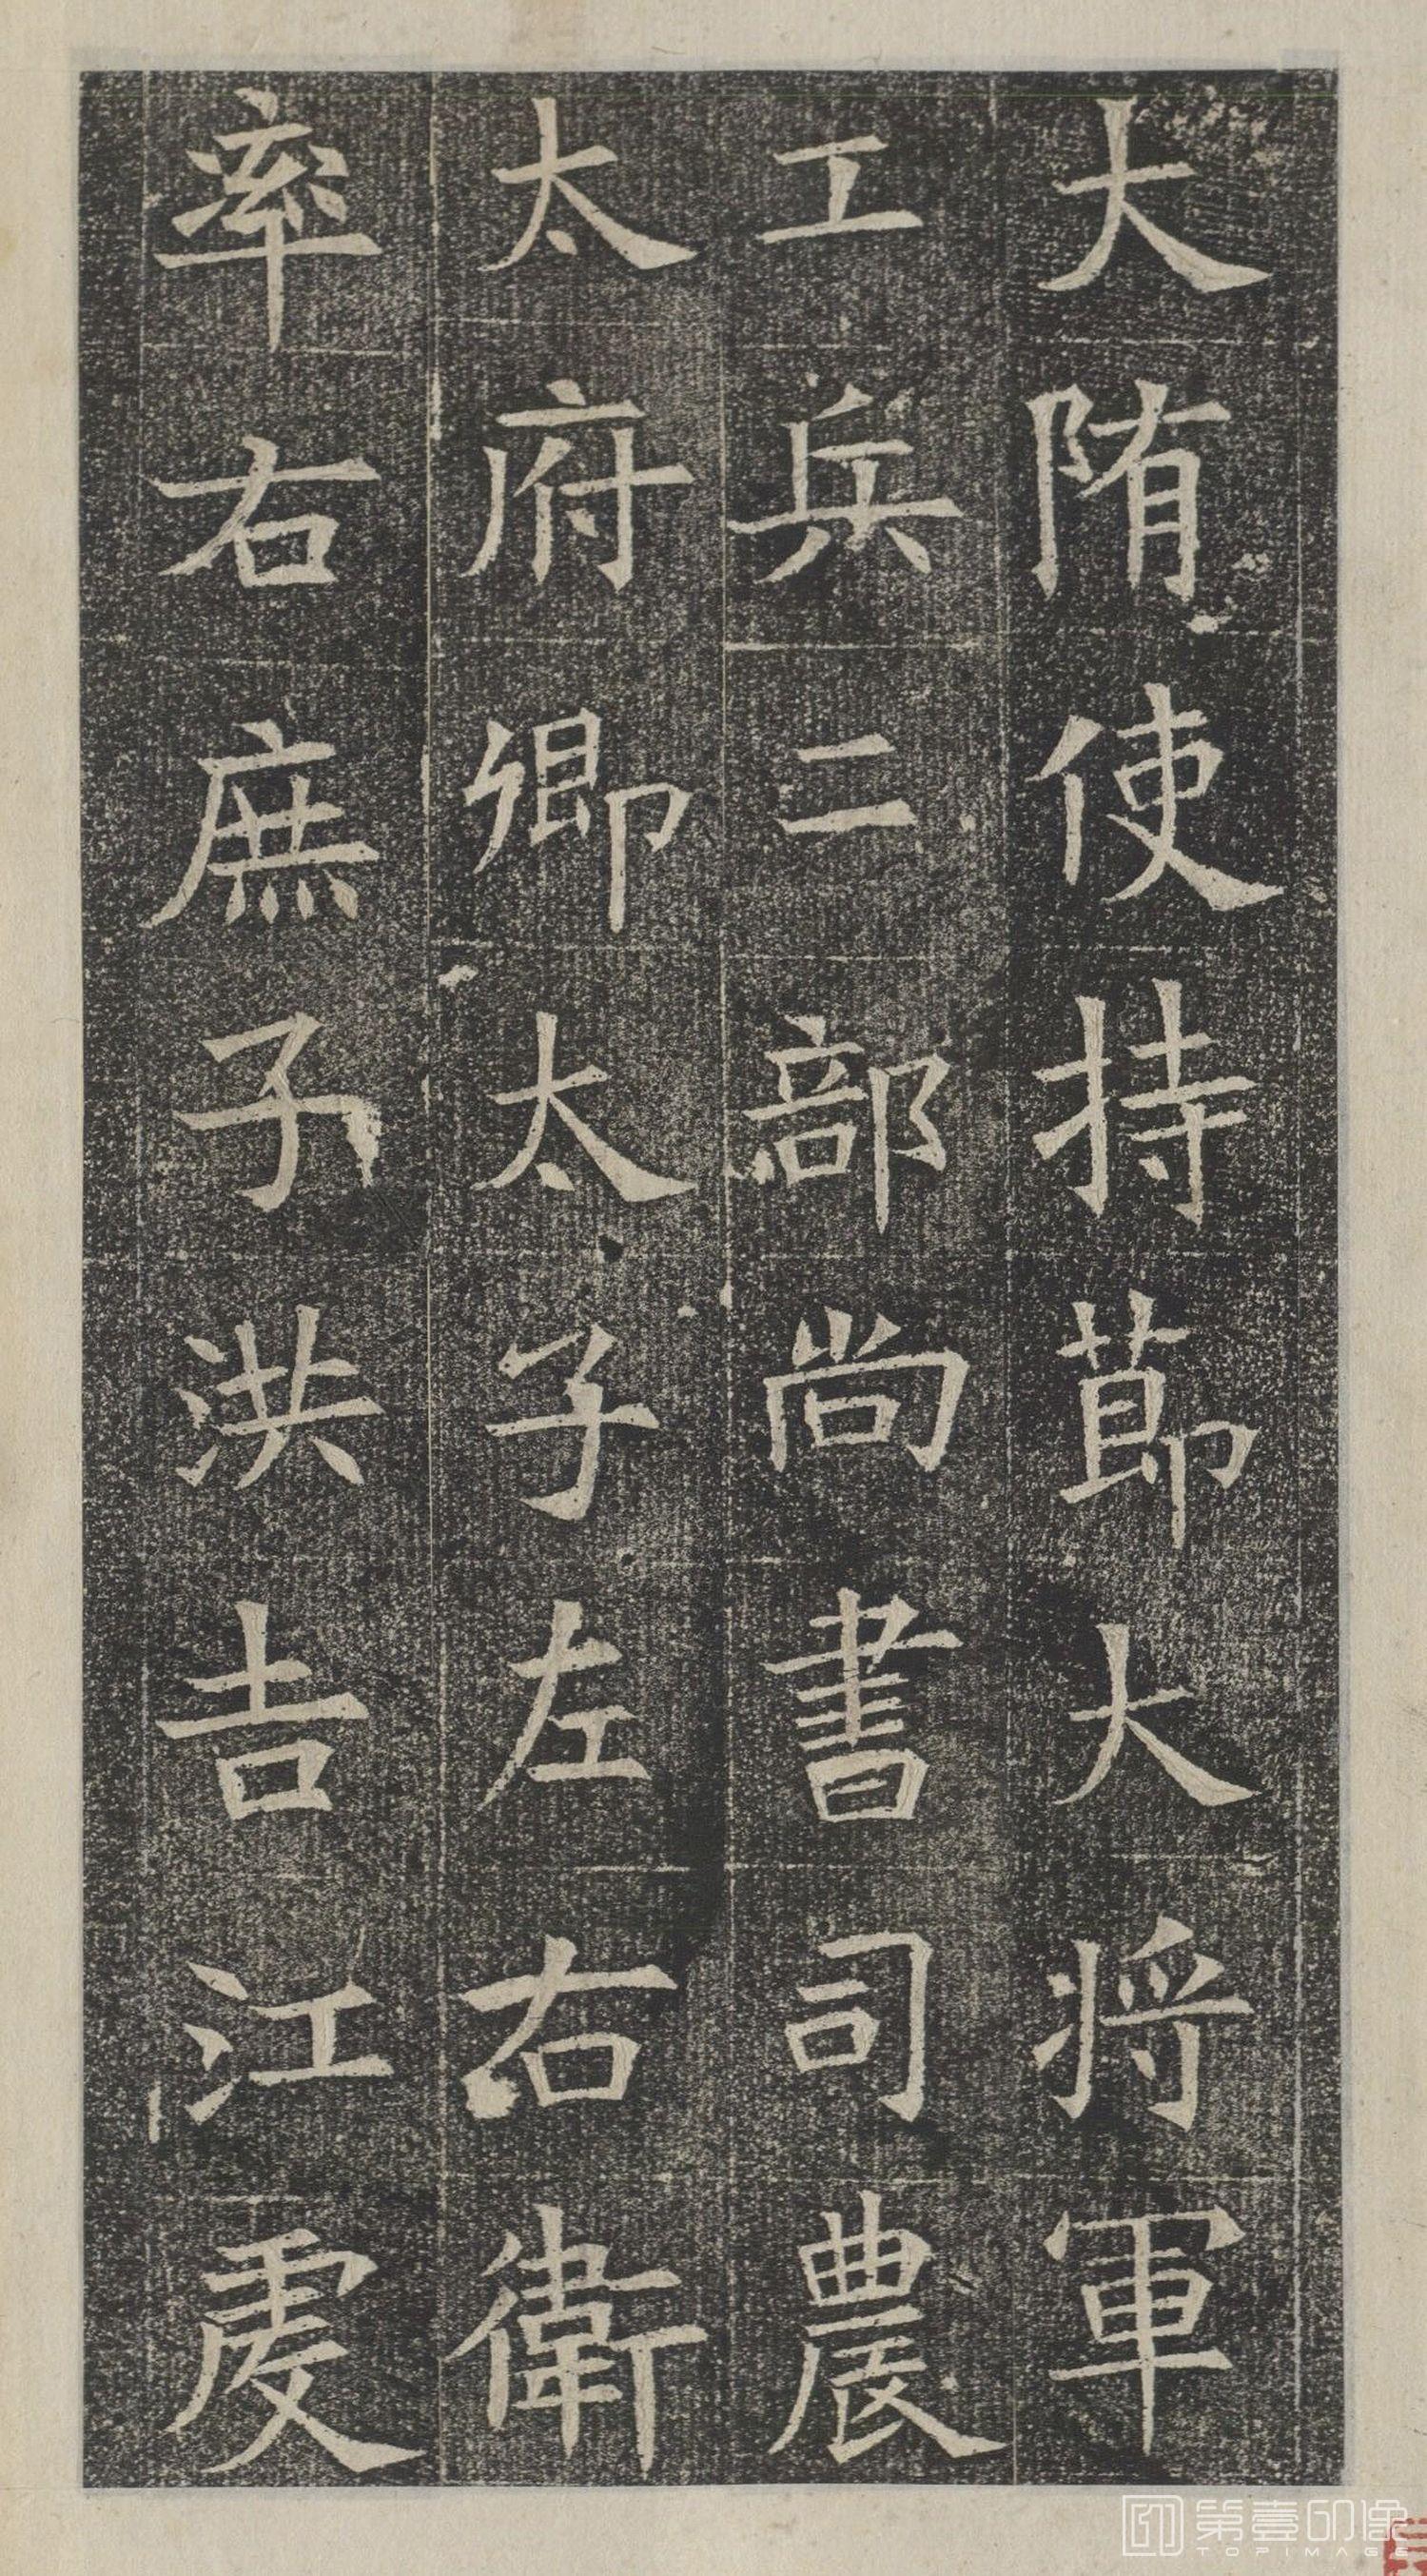 大隋使持節大將軍
工兵二部尚書司農
太府卿太子左右衛
率右庶子洪吉江虔
第壹印像
TOPIMAGE